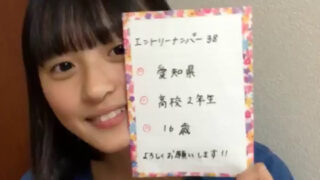 エントリーナンバー 38
愛知県
高校2年生
16歳
よろしくお願いします!!